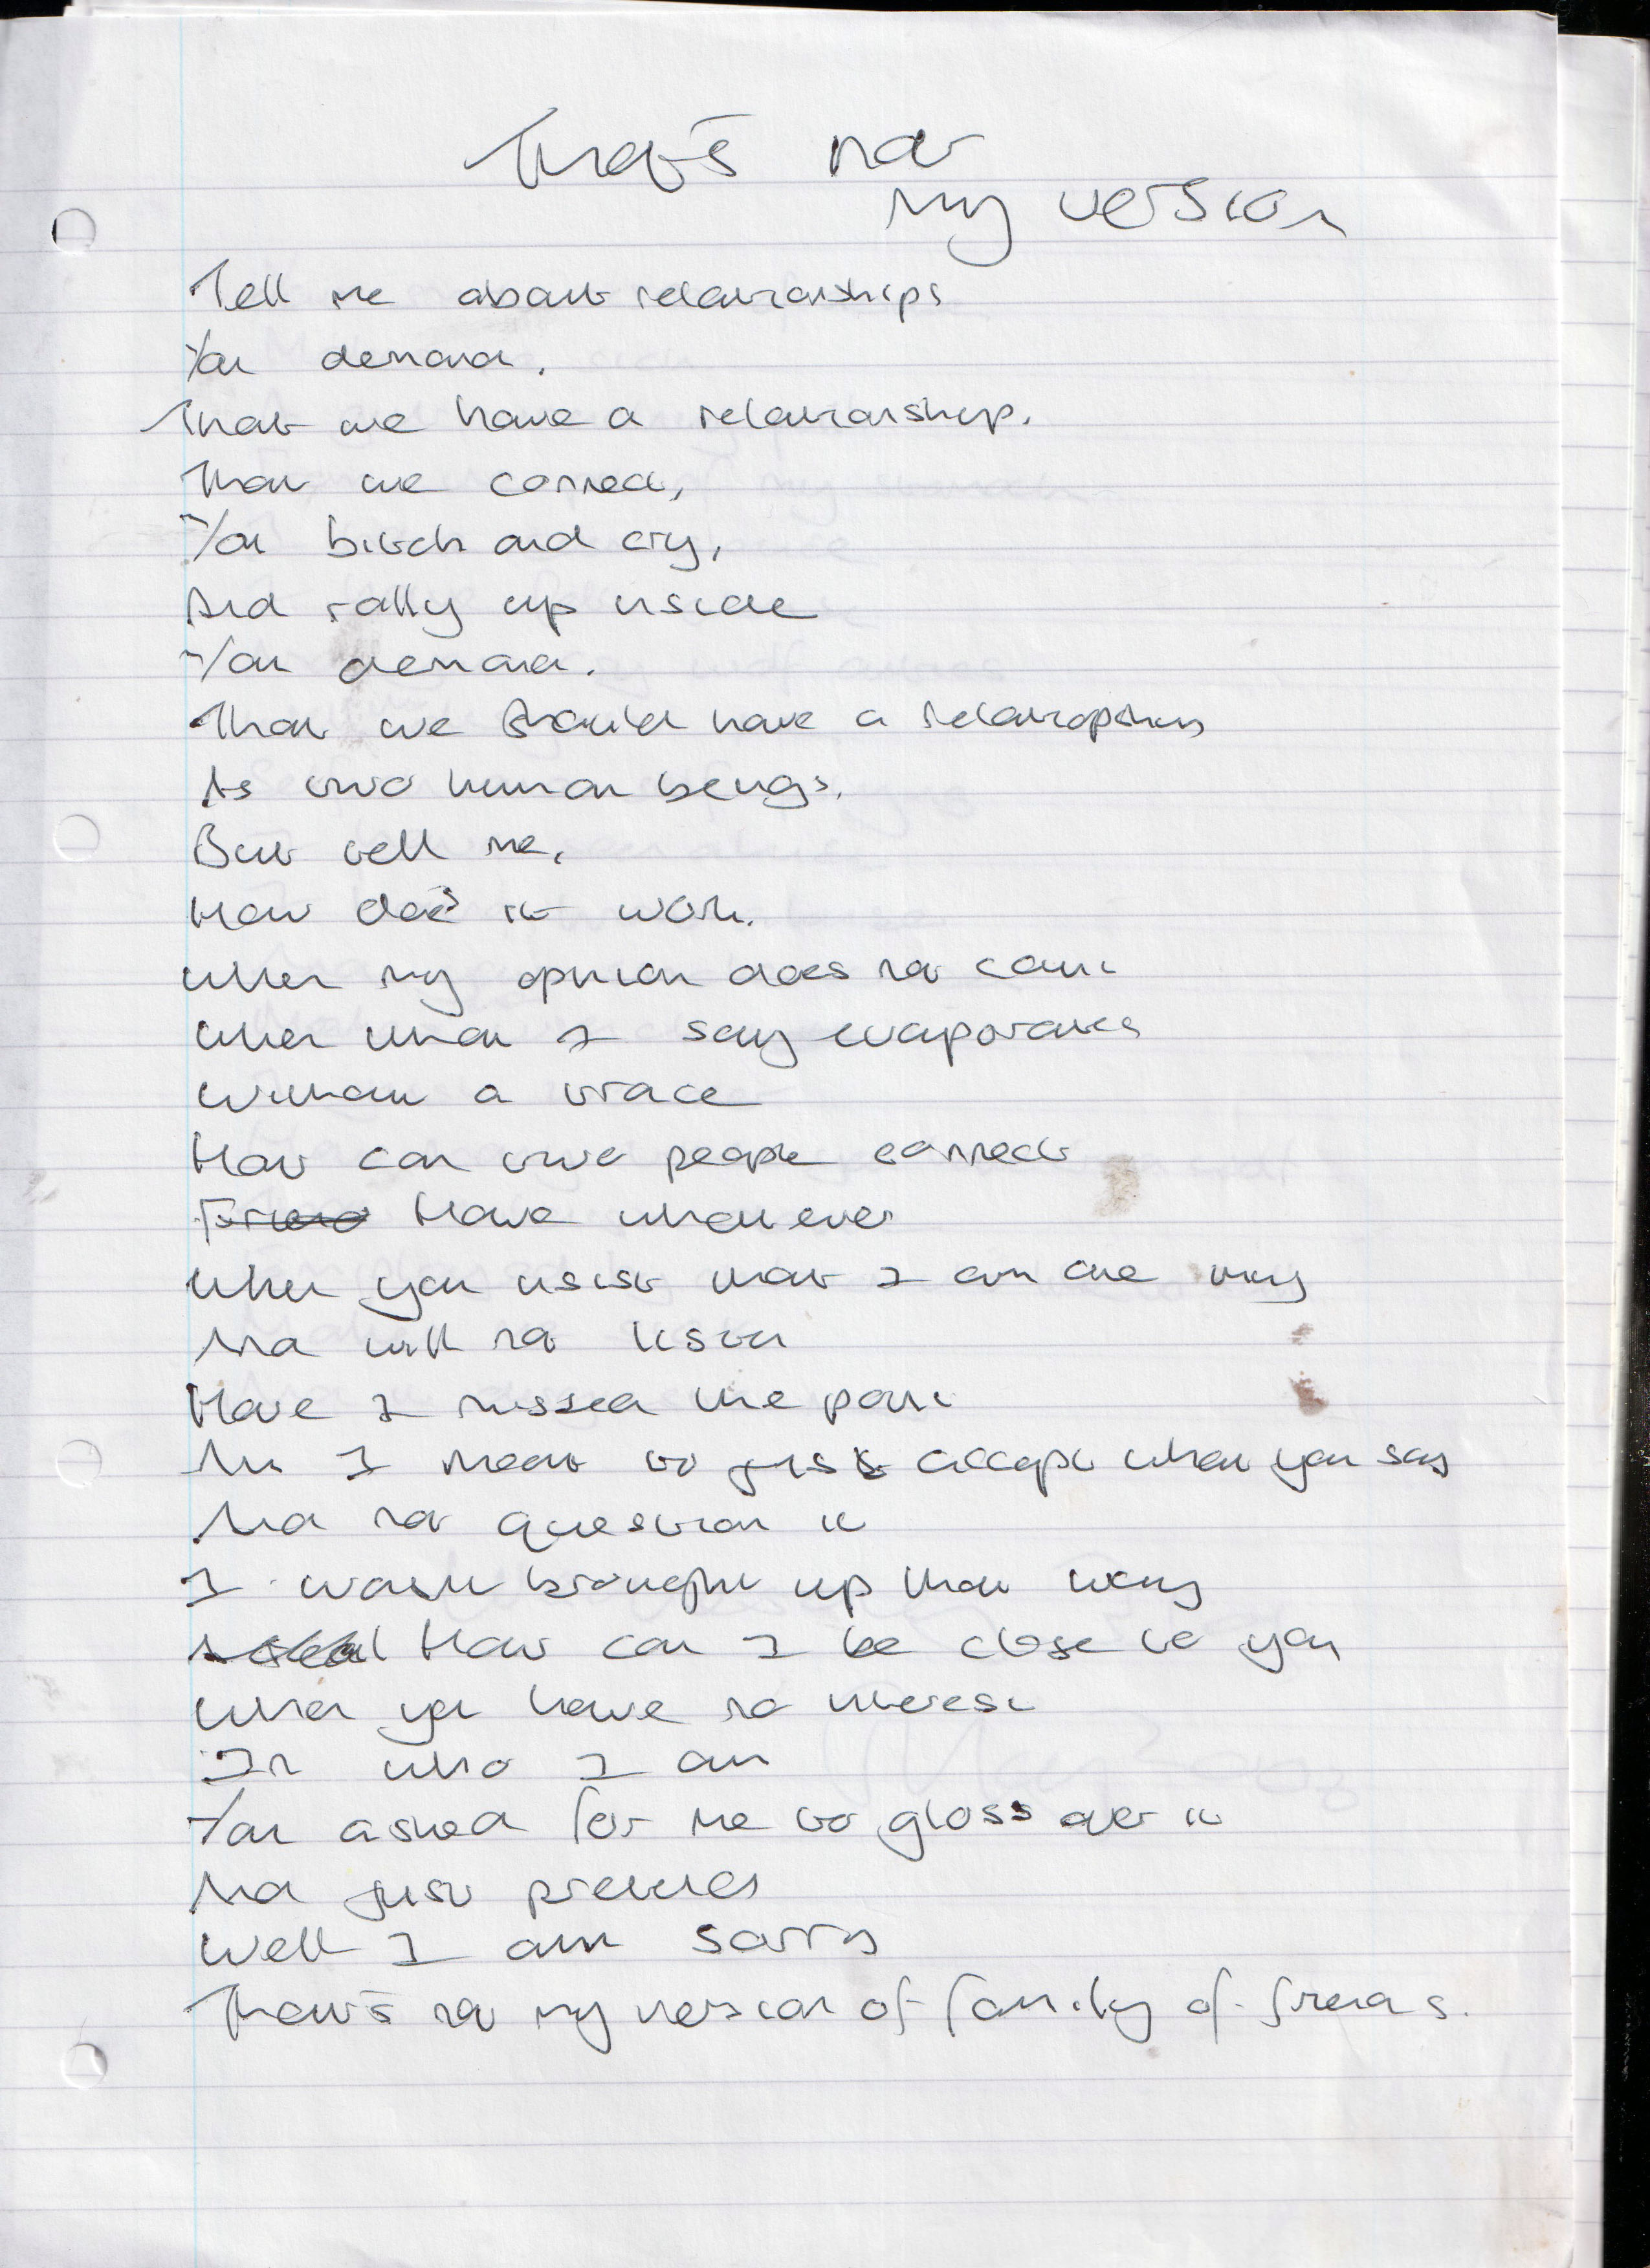 That's not
my version
Tell me about relationships
You demand.
That we have a relationship.
That we connect,
You bitch and cry,
And rally up inside
You demand.
That we should have a relationship
As two human beings.
But tell me,
How does it work.
When my opinion does not count
When what I say evaporates
Without a trace
How can two people connect
Have whatever
When you insist that I am one way
And will not listen
Have I missed the point
Am I meant to just accept what you say
And not question it
I wasn't brought up that way
How can I be close to you
When you have no interest
In who I am
You asked for me to gloss over it
And just pretend
Well I am sorry
That's not my version of family or friends.